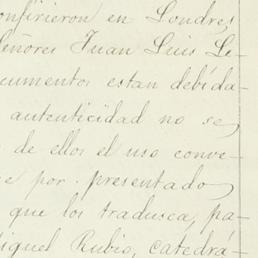 onfirieron en Londres
eñores Juan Luis Li-
cumentos estan debida-
autenticidad no se
de ellos el uso conve-
e por presentado
que los traduzca, pa-
iguel Rubio, catedrá-